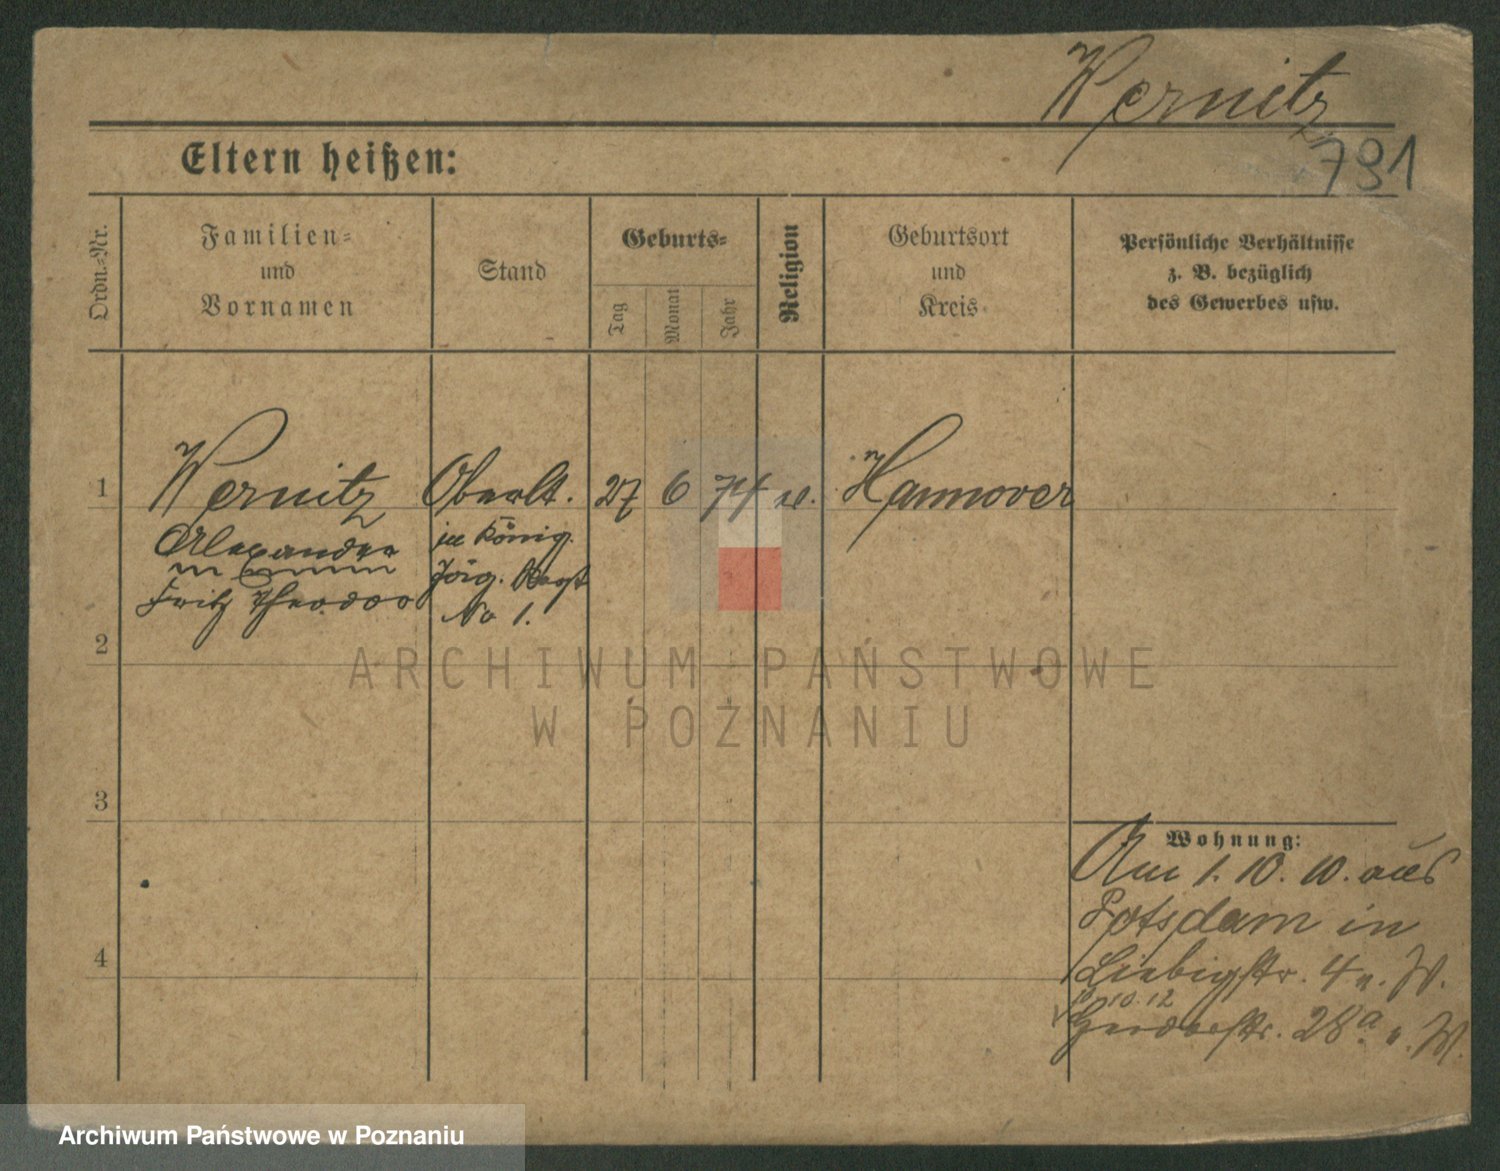 Wernitz
791
Eltern heißen:
Ordn.=Nr.
Familien=
und
Vornamen
Stand
Geburts=
Tag
Monat
Jahr
Religion
Geburtsort
und
Kreis
Persönliche Verhältnisse
z. B. bezüglich
des Gewerbes usw.
1
Wernitz
Oberlt.
27
6
74
Hannover
Alexander
im König.
Jäg. Regt
Fritz Theodor
No 1.
2
ARCHIWUM PAŃSTWOWE
W POZNANIU
3
Wohnung:
Am 1. 10. 10. aus
Potsdam in
4
Liebigstr. 4 W.
10. 10. 12
28a W.
Archiwum Państwowe w Poznaniu